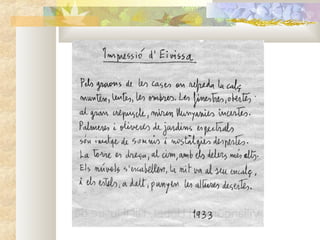 Impressió d'Eivissa
Pels graons de les cases on refreda la calç
munten, lentes, les ombres. Les finestres, obertes
al gran crepuscle, miren llunyanies incertes.
Palmeres i oliveres de jardins espectrals
són imatge de somnis i nostàlgies despertes.
La torre es dreça, al cim, amb els delers més alts.
Els núvols s'encabellen, la nit va al seu encalç,
i els estels, a dalt, punyen les altures desertes.
1933